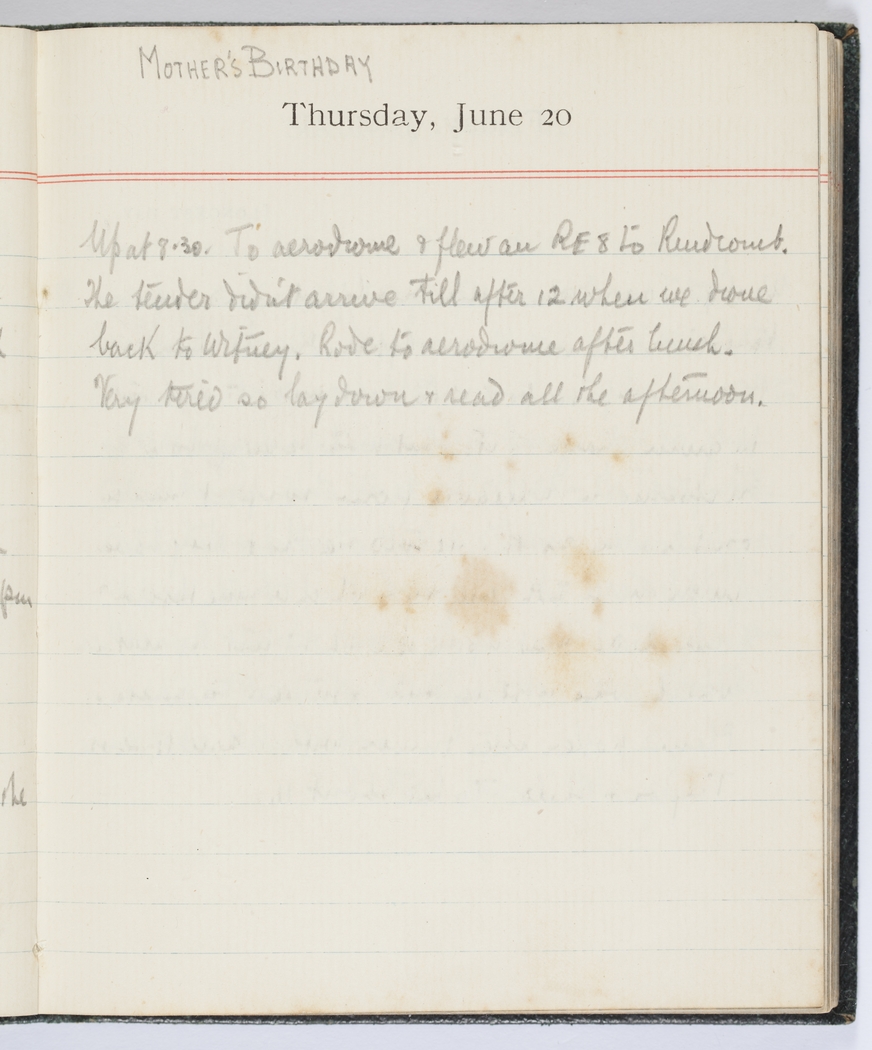 MOTHER'S BIRTHDAY
Thursday, June 20
Up at 8.30. To aerodrome & flew an RE8 to Rendcomb.
The tender didn't arrive till after 12 when we drove
back to Witney. Rode to aerodrome after lunch.
Very tired so lay down & read all the afternoon.
pm
the